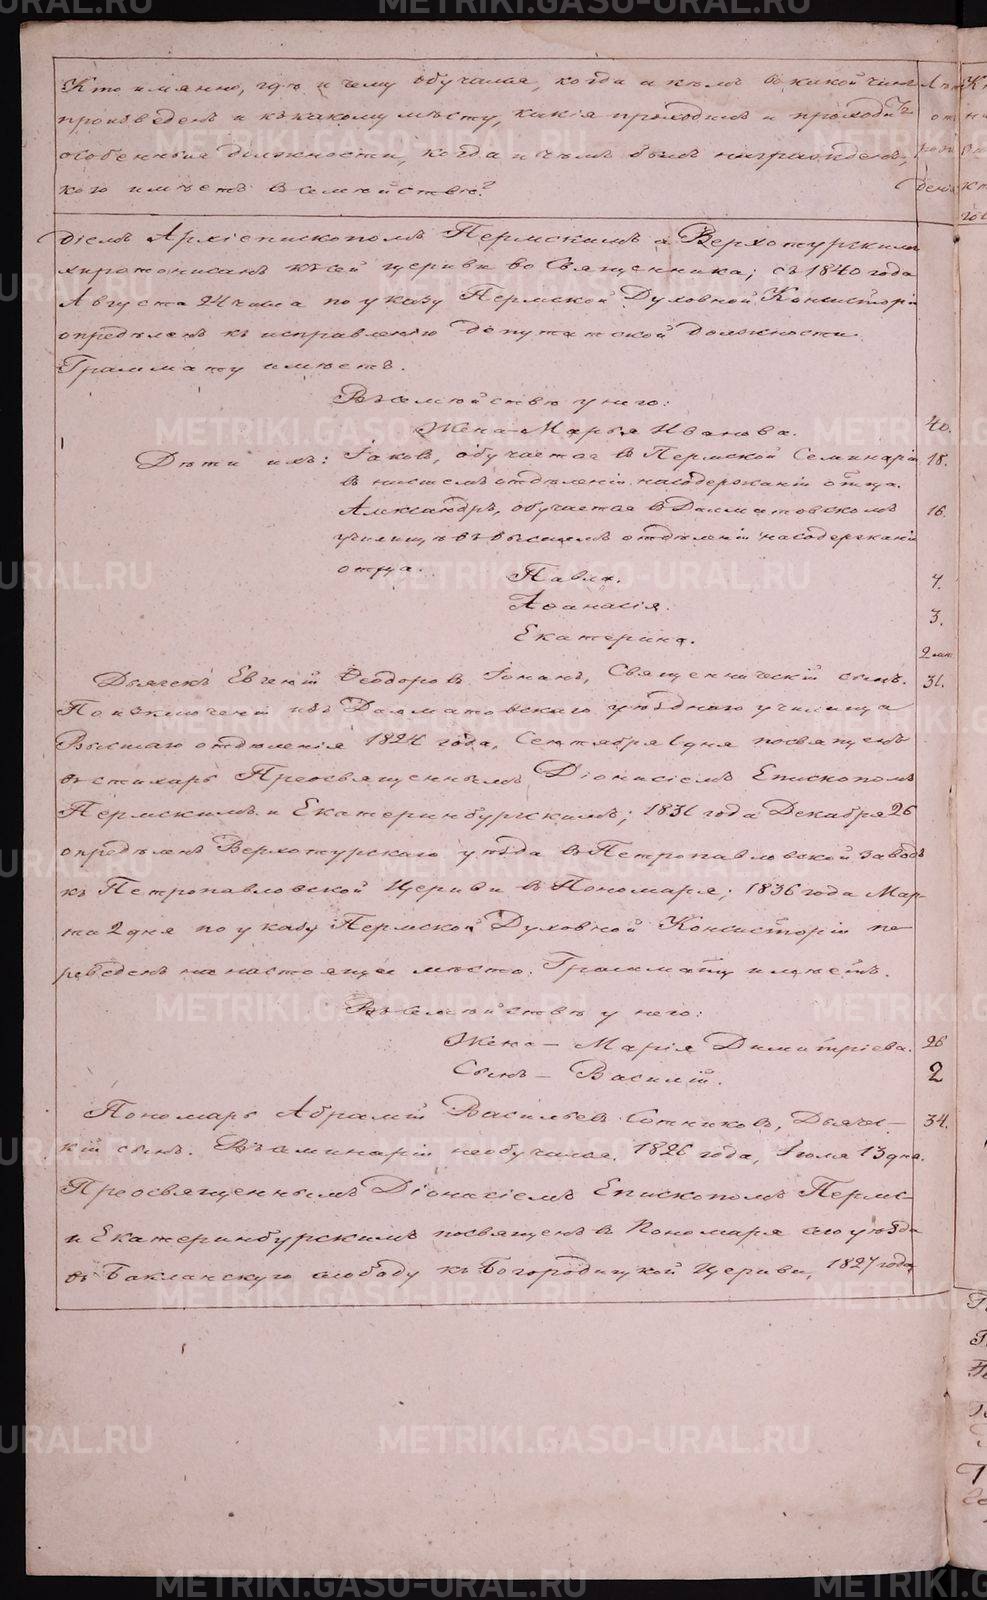 Кто имянно, гдѣ и чему обучался, когда и кѣмъ въ какой чинъ
произведенъ и къ какому мѣсту, какія проходилъ и проходитъ
особенныя должности, когда и чѣмъ былъ награжденъ,
кого имѣетъ въ семействѣ?
Лѣта
отъ
рож
денія
діемъ Архіепископомъ Пермскимъ и Верхотурскимъ
хиротонисанъ къ сей церкви во Священника; съ 1840 года
Августа 24 числа по указу Пермской Духовной Консисторіи
опредѣленъ къ исправленію депутатской должности.
Граммату имѣетъ.
Въ семействѣ у него:
Жена – Марья Иванова. 40.
Дѣти ихъ: Іаковъ, обучается въ Пермской Семинаріи 18.
въ нисшемъ отдѣленіи на содержаніи отца.
Александръ, обучается въ Далматовскомъ 16.
училищѣ въ высшемъ отдѣленіи на содержаніи
отца.
Павла. 7.
Аѳанасія. 3.
Екатерина. 2 мѣс.
Дьячекъ Евгеній Ѳеодоровъ Романъ, Священническій сынъ. 31.
По изключеніи изъ Далматовскаго уѣзднаго училища
Высшаго отдѣленія 1824 года, Сентября дня посвященъ
въ стихарь Преосвященнымъ Діонисіемъ Епископомъ
Пермскимъ и Екатеринбургскимъ; 1831 года Декабря 26
опредѣленъ Верхотурскаго уѣзда въ Петропавловской заводъ
къ Петропавловской Церкви въ Пономаря; 1836 года Мар-
та 2 дня по указу Пермской Духовной Консисторіи пе
реведенъ на настоящее мѣсто. Граммату имѣетъ.
Въ семействѣ у него:
Жена – Марія Димитріева. 26
Сынъ – Василій. 2
Пономарь Абрамій Васильевъ Сотниковъ, Дьячес- 34.
кій сынъ. Въ Семинаріи не обучался. 1826 года, Іюля 13 дня.
Преосвященнымъ Діонисіемъ Епископомъ Пермс
и Екатеринбурскимъ посвященъ въ Пономаря сего уѣзда
въ Бакланскую слободу къ Богородицкой Церкви, 1827 года
METRIKI.GASO-URAL.RU